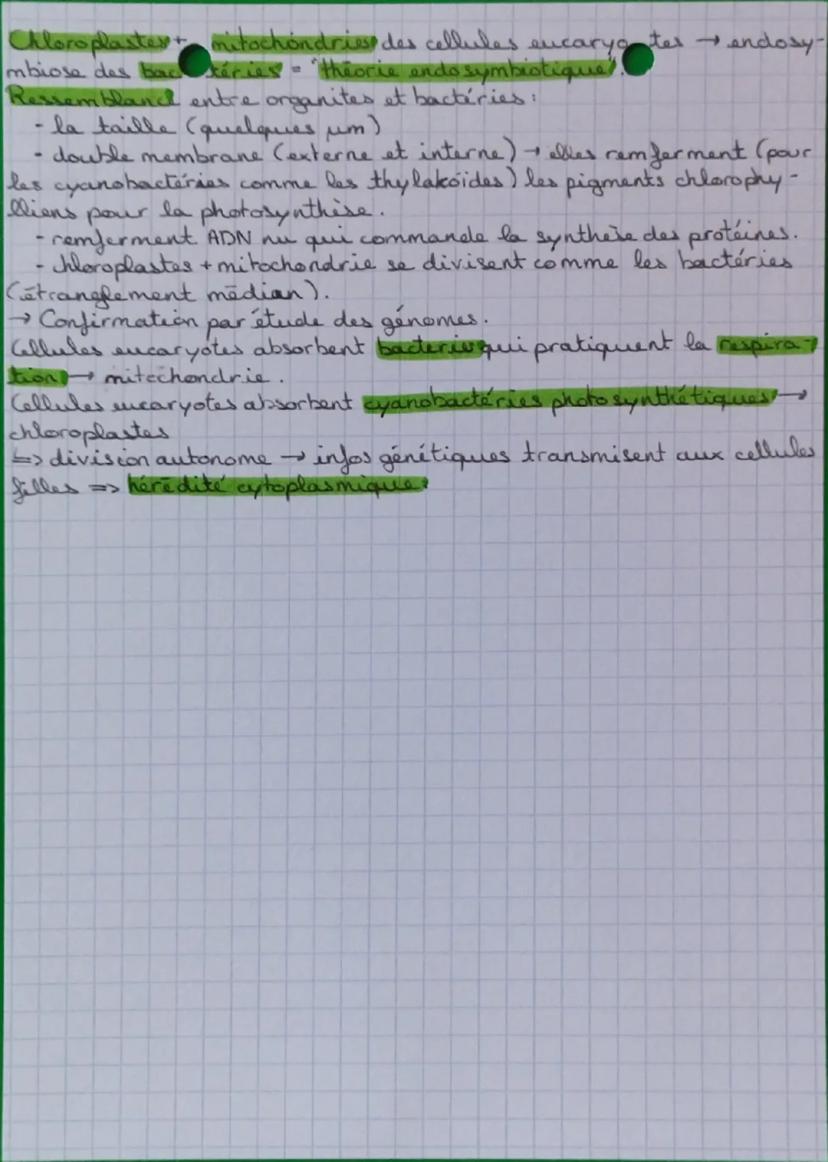 Chloroplastes + mitochondries des cellules eucaryotes → endosy-
mbiose des bactéries = "théorie endosymbiotique".
Ressemblance entre organites et bactéries :
- la taille (quelques μm)
- double membrane (externe et interne) → elles remferment (pour
les cyanobactéries comme les thylakoïdes) les pigments chlorophy-
lliens pour la photosynthèse.
- remferment ADN nu qui commande la synthèse des protéines.
- chloroplastes + mitochondrie se divisent comme les bactéries
(étranglement médian).
→ Confirmation par étude des génomes.
Cellules eucaryotes absorbent bacteries qui pratiquent la respira-
tion → mitochondrie.
Cellules eucaryotes absorbent cyanobactéries photosynthétiques →
chloroplastes
↳> division autonome → infos génétiques transmisent aux cellules
filles => hérédité cytoplasmique.